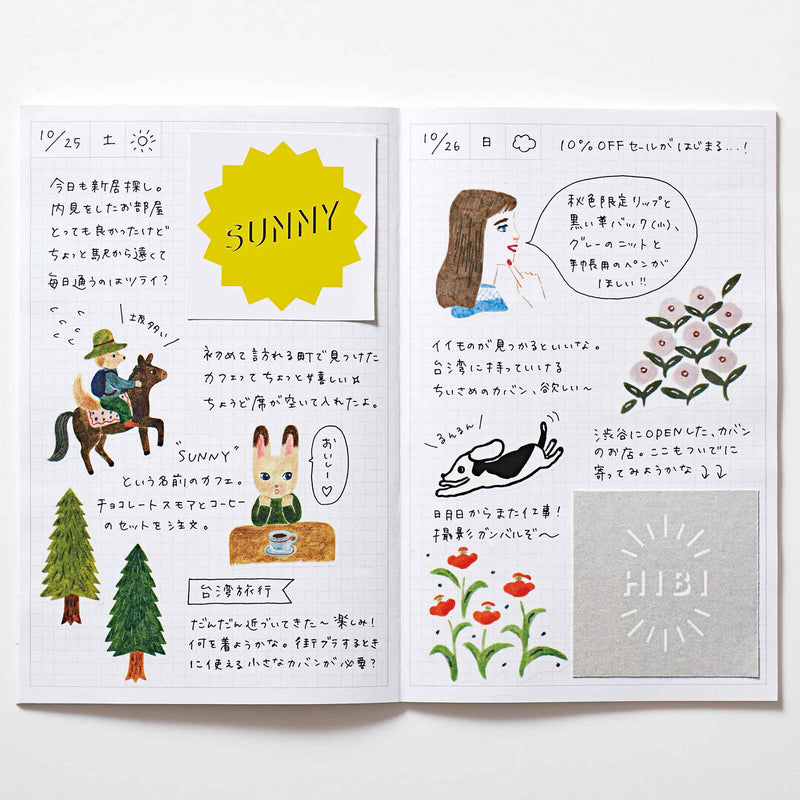 10/25 土
今日も新居探し。
内見をしたお部屋
とっても良かったけど
ちょっと駅から遠くて
毎日通うのはツライ?
SUNNY
坂多い
初めて訪れる町で見つけた
カフェってちょっと嬉しい☆
ちょうど席が空いて入れたよ。
"SUNNY"
という名前のカフェ。
チョコレートスモアとコーヒー
のセットを注文。
おいしー♡
台湾旅行
だんだん近づいてきた〜楽しみ!
何を着ようかな。街ブラするとき
に使える小さなカバンが必要?
10/26 日
10%OFFセールがはじまる...!
秋色限定リップと
黒い革バック(小)、
グレーのニットと
手帳用のペンが
ほしい!!
イイものが見つかるといいな。
台湾に持っていける
ちいさめのカバン、欲しい〜
るんるん
渋谷にOPENした、カバン
のお店。ここもついでに
寄ってみようかな↓↓
明日からまた仕事!
撮影ガンバルぞ〜
HIBI